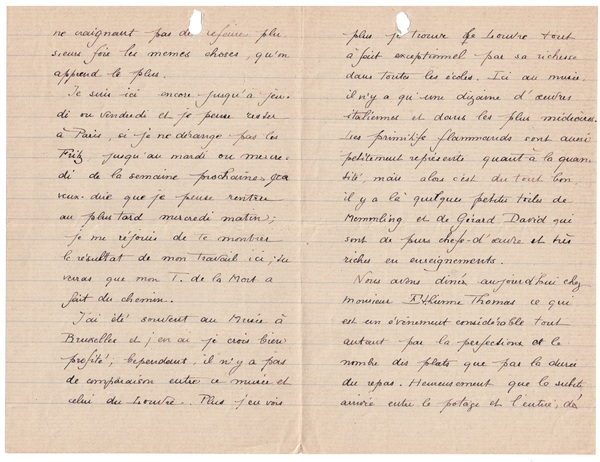 ne craignant pas de refaire plu-
sieurs fois les mêmes choses, qu'on
apprend le plus.
Je suis ici encore jusqu'à jeu-
di ou vendredi et je pense rester
à Paris, si je ne dérange pas les
Fritz, jusqu'au mardi ou mercre-
di de la semaine prochaine, ça
veux-dire que je pense rentrer
au plus tard mercredi matin;
je me réjouis de te montrer
le résultat de mon travail ici; tu
verras que mon T. de la Mort a
fait du chemin.
J'ai été souvent au Musée à
Bruxelles et j'en ai je crois bien
profité; cependant, il n'y a pas
de comparaison entre ce musée et
celui du Louvre. Plus j'en vois
plus je trouve le Louvre tout
à fait exceptionnel par sa richesse
dans toutes les écoles. Ici au musée
il n'y a qu'une dizaine d'œuvres
italiennes et dans les plus médiocres.
Les primitifs flammands sont aussi
petitement représentés quant à la quan-
tité, mais alors c'est du tout bon,
il y a là quelques petites toiles de
Memmling et de Gérard David qui
sont de purs chefs-d'œuvre et très
riches en enseignements.
Nous avons dîné aujourd'hui chez
monsieur Thomas ce qui
est un évènement considérable tout
autant par la perfection et le
nombre des plats que par la durée
du repas. Heureusement que la
arrivée entre le potage et l'entrée, de